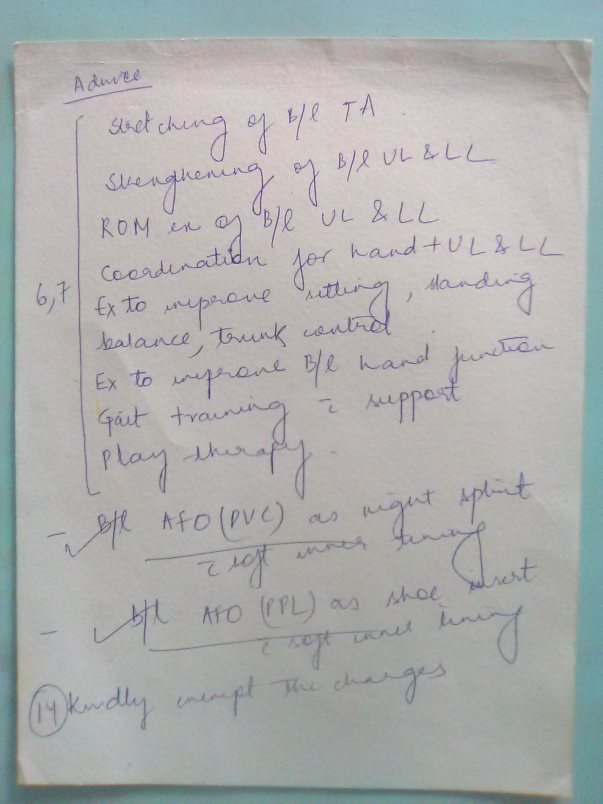 Advice
Stretching of B/l TA
Strengthening of B/l UL & LL
ROM ex of B/l UL & LL
Coordination for hand + UL & LL
6,7 Ex to improve sitting, standing
balance, trunk control
Ex to improve B/l hand function
Gait training c̄ support
Play therapy.
- B/l AFO (PVC) as night splint
c̄ soft inner lining
- B/l AFO (PPL) as shoe insert
c̄ soft inner lining
14 Kindly exempt the charges